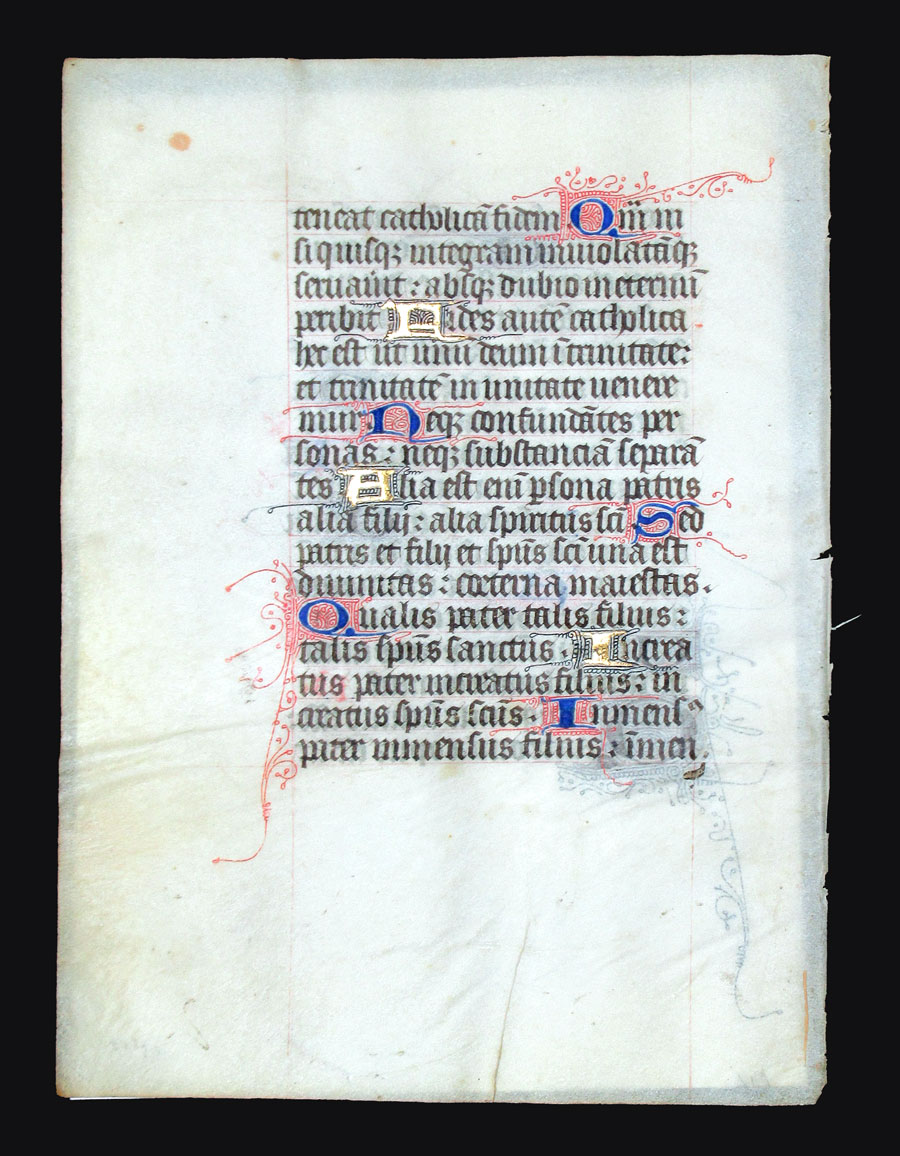 teneat catholicā fidem Quā ni
si quisq; integram inuiolatāq;
seruauit : absq; dubio in eternū
peribit Fides autē catholica
hec est ut unū deum ī trinitate :
et trinitatē in unitate uenere
mur Neq; confundētes per
sonas : neq; substanciā separā
tes Alia est enī psona patris
alia filij : alia spiritus sc̄i Sed
patris et filij et spūs sc̄i una est
diuinitas : coeterna maiestas .
Qualis pater talis filius :
talis spūs sanctus . Increa
tus pater increatus filius : in
creatus spūs sc̄us . Inmens⁹
pater inmensus filius : īmen .